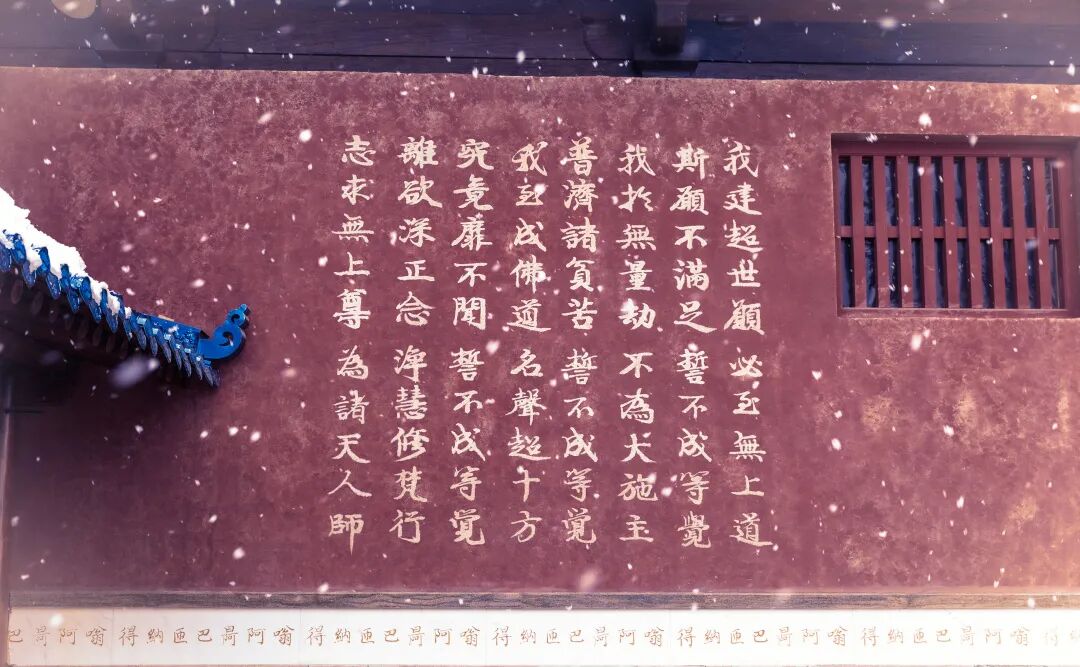 我建超世願 必至無上道
斯願不滿足 誓不成等覺
我於無量劫 不為大施主
普濟諸貧苦 誓不成等覚
我至成佛道 名聲超十方
究竟靡不聞 誓不成等覚
離欲深正念 淨慧修梵行
志求無上尊 為諸天人師
得 嗡阿曷巴匝納得 嗡阿曷巴匝納得 嗡阿曷巴匝納得 嗡阿曷巴匝納得 嗡阿曷巴匝納得 嗡阿曷巴